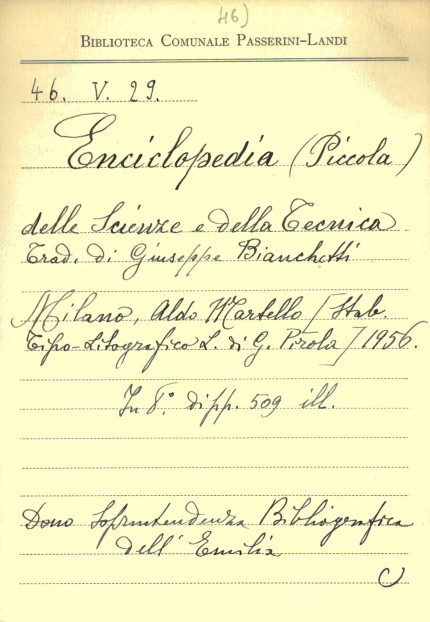 46)
BIBLIOTECA COMUNALE PASSERINI-LANDI
46. V. 29.
Enciclopedia (Piccola)
delle Scienze e della Tecnica
Trad. di Giuseppe Bianchetti
Milano, Aldo Martello [Stab.
Tipo-Litografico L. di G. Pirola] 1956.
In 8°. di pp. 509 ill.
Dono Soprintendenza Bibliografica
dell' Emilia